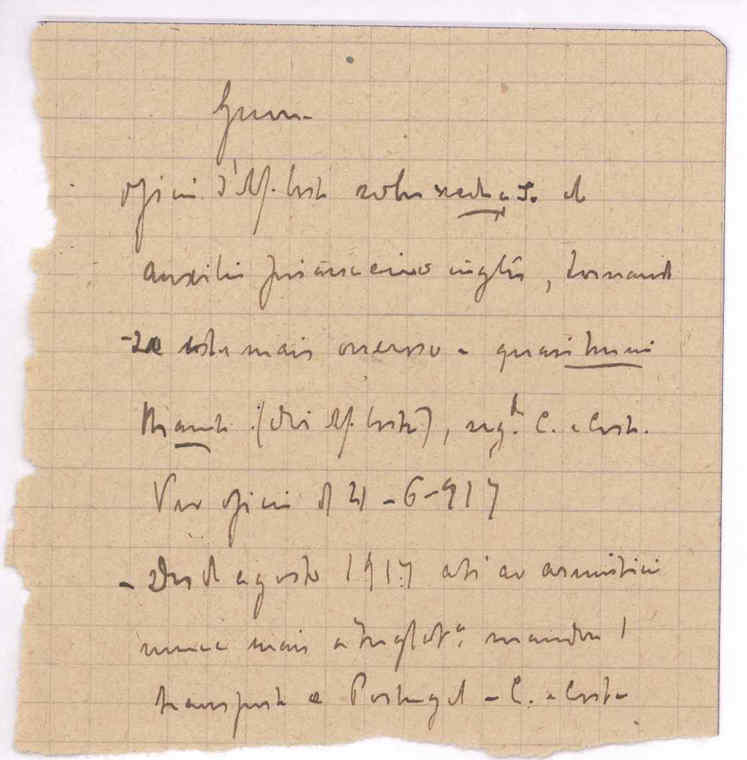 Guerra
oficio d'Af. Costa sobre de
auxilio financeiro inglês, tornando
-se este mais oneroso e quasi humi
lhante (diz Af. Costa), seg.do C. e Costa.
Ver oficio de 21-6-917
- Desde agosto 1917 até ao armisticio
nunca mais a Inglat.a mandou 1
transporte a Portugal - C. e Costa